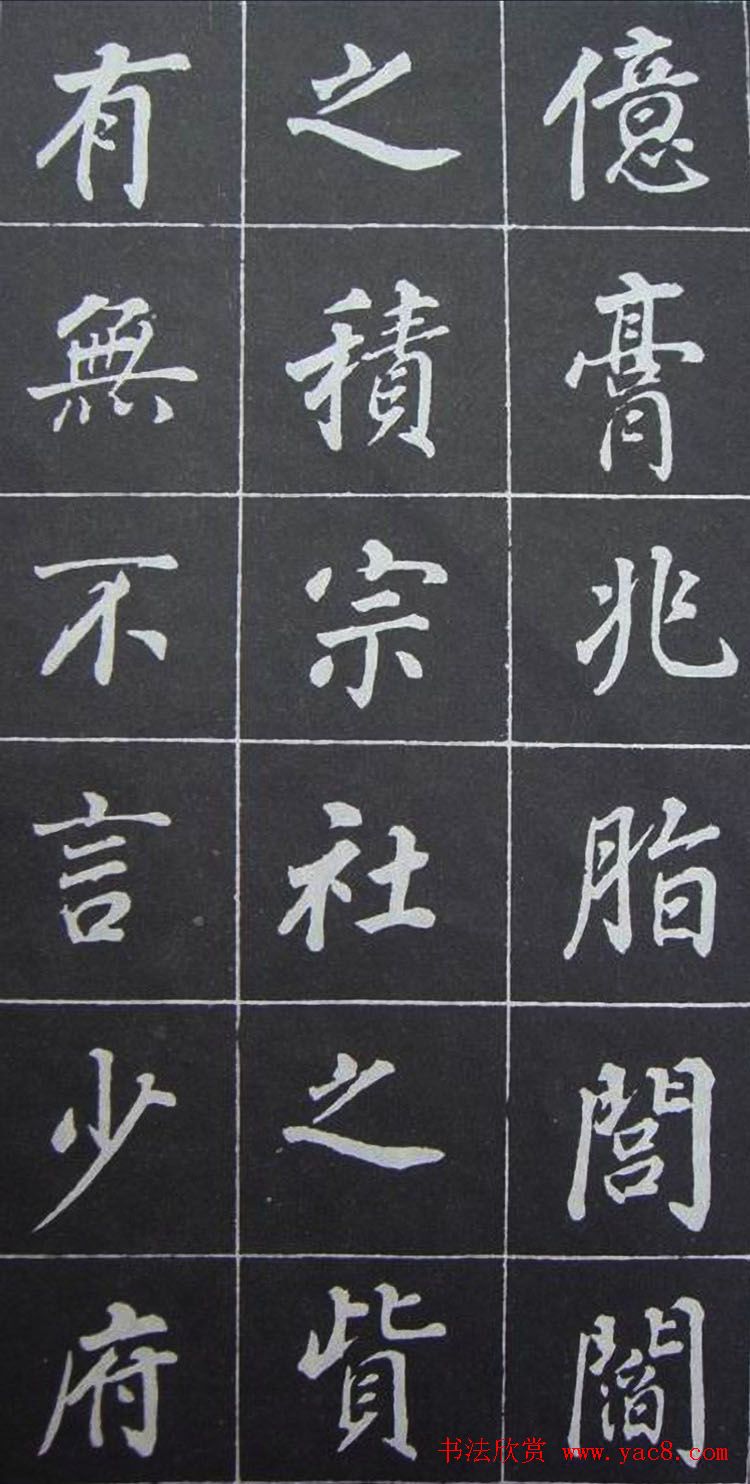 億膏兆脂閭閻
之積宗社之貲
有無不言少府
书法欣赏 www.yac8.com